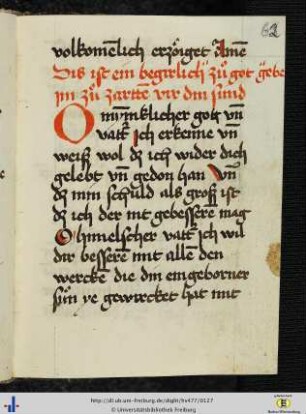 62
volkomẽlich erzöiget Amẽ
Dis ist ein begirlich zů got gebe
im zů zarttẽ vir din sund
O Mynnklicher gott vñ
vattr ich erkenne vñ
weiß wol dz ich wider dich
gelebt vñ gedon han vñ
dz min schuld als groß ist
dz ich der nit gebesserẽ mag
O himelscher vattr ich wil
dir besserẽ mit allẽ den
werckẽ die din eingeborner
sůn ye gewircket hat mit
http://dl.ub.uni-freiburg.de/diglit/hs477/0127
© Universitätsbibliothek Freiburg